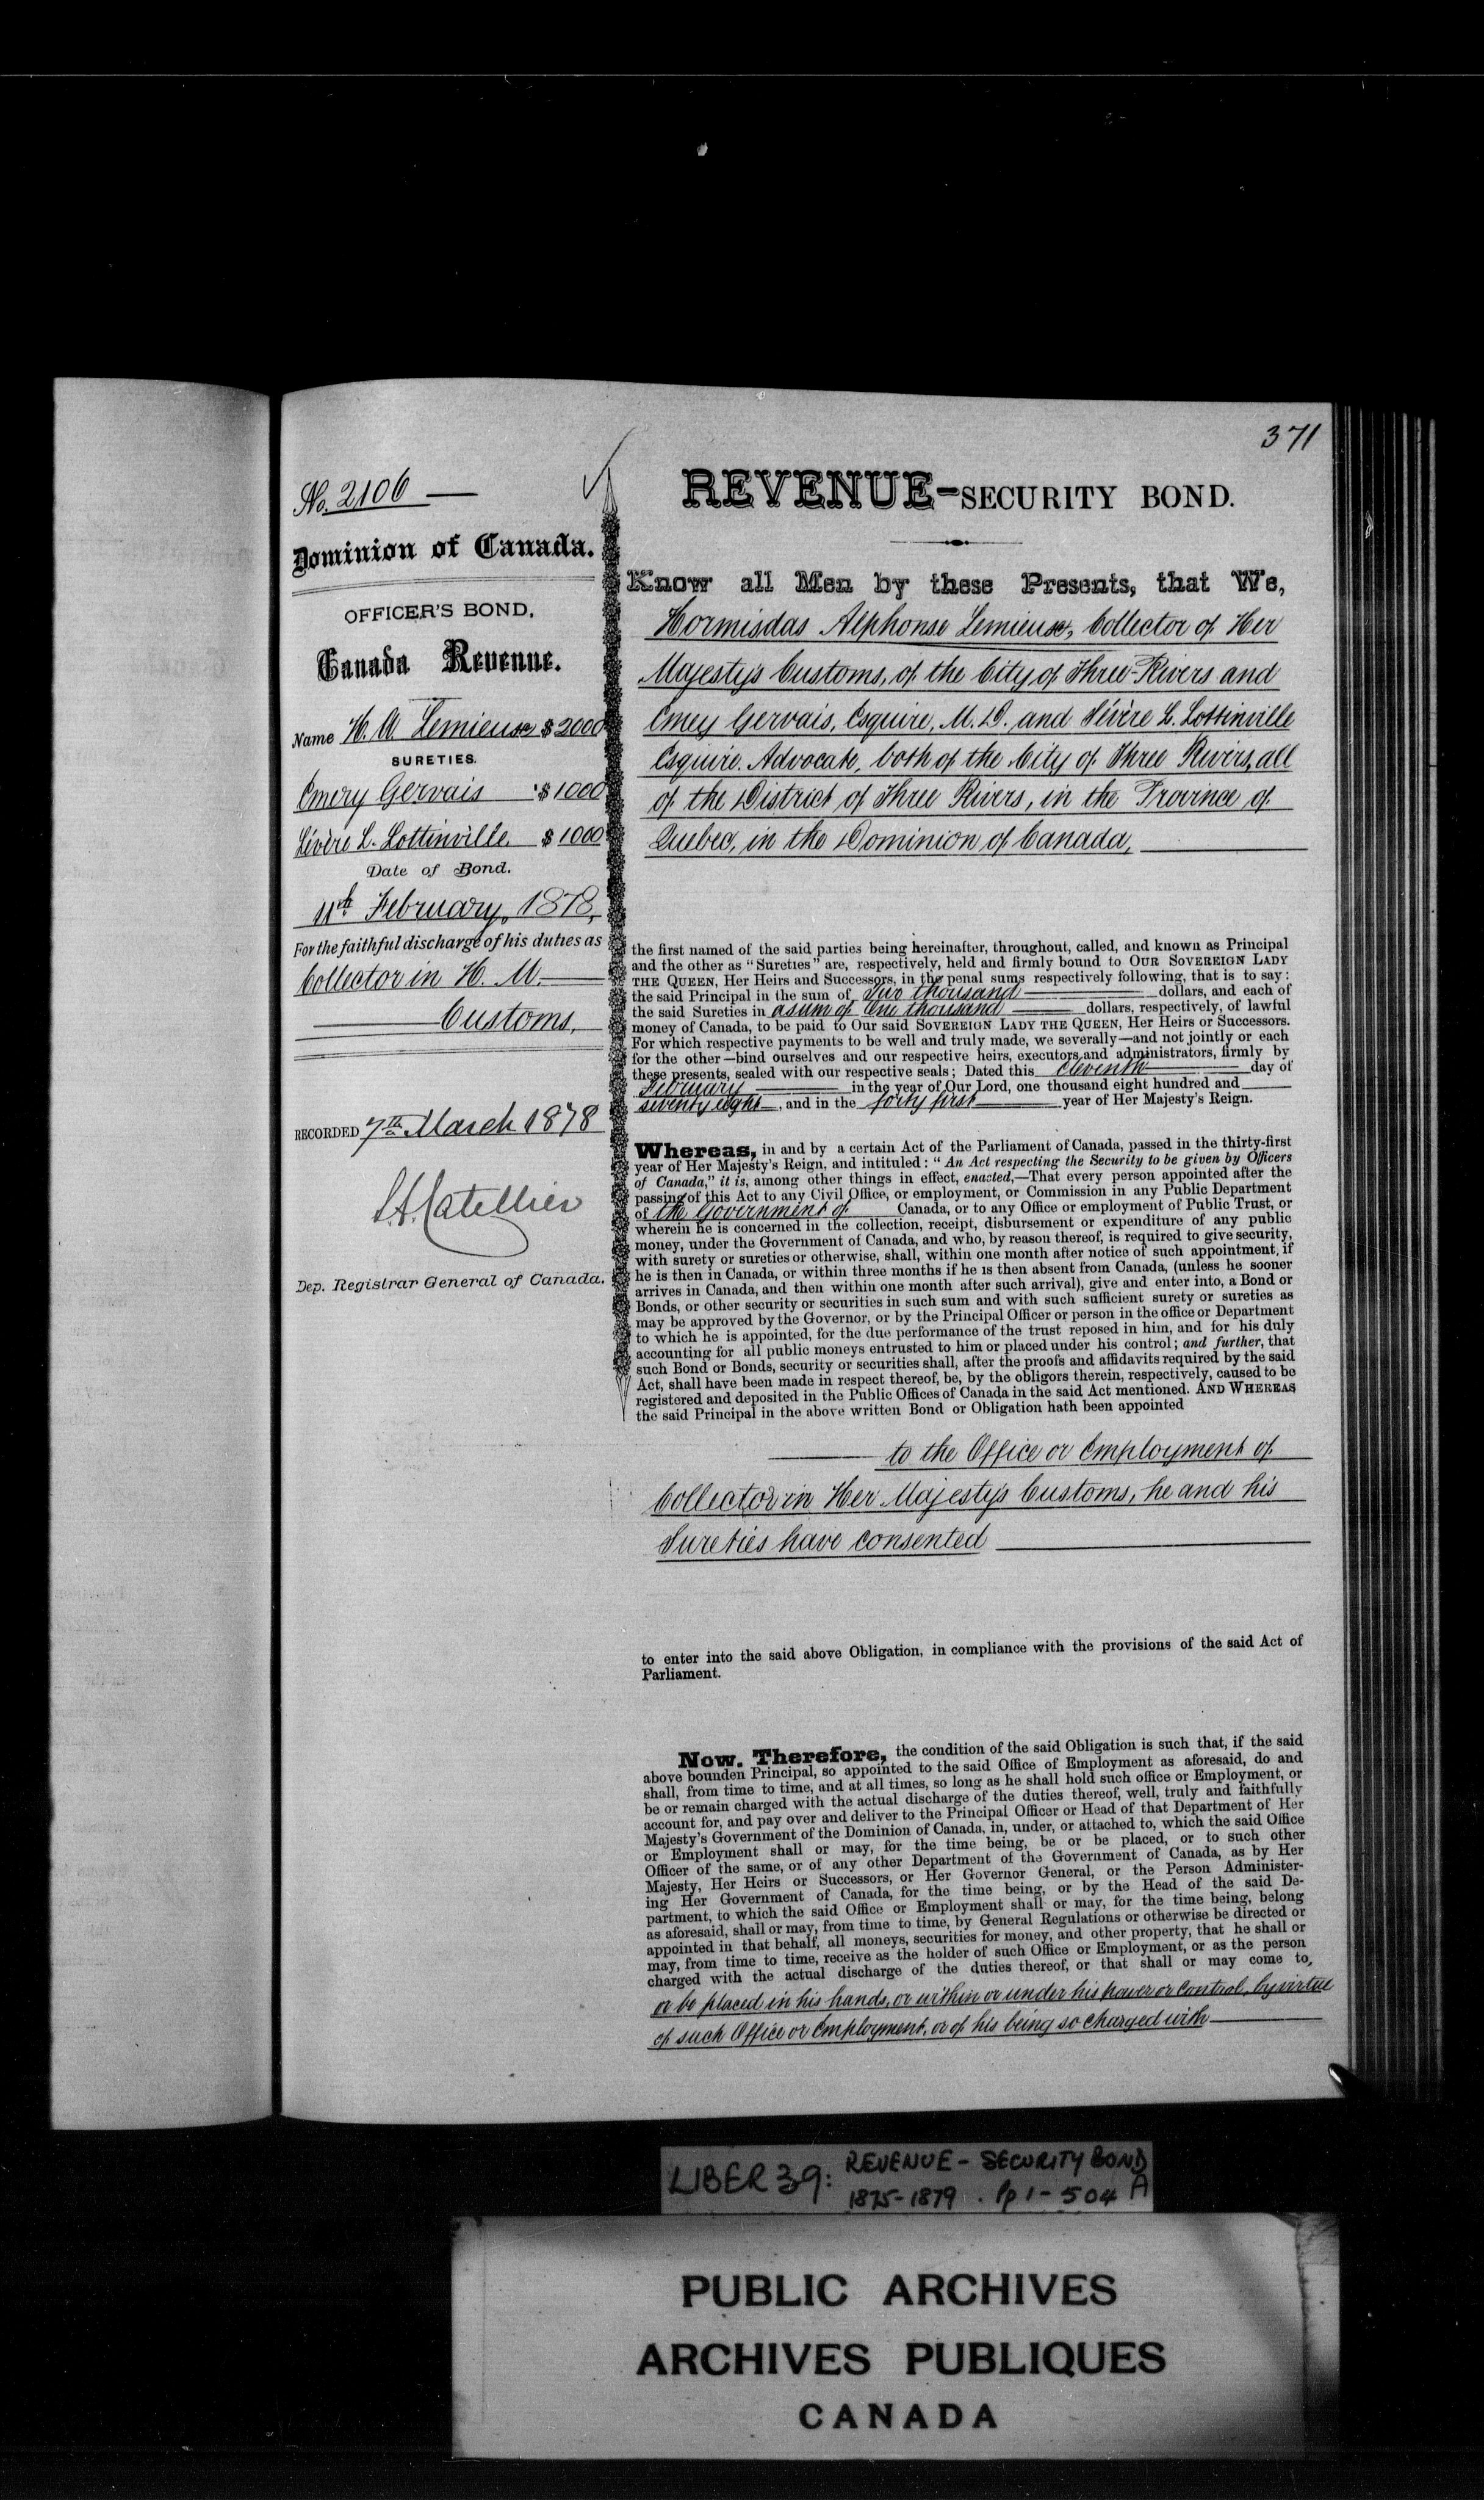 371
No. 2106
Dominion of Canada.
OFFICER'S BOND,
Canada Revenue.
Name H. A. Lemieux $ 2000
SURETIES.
Emery Gervais $ 1000
Sévère L. Lottinville. $ 1000
Date of Bond.
11th February, 1878,
For the faithful discharge of his duties as
Collector in H. M.
Customs,
RECORDED 7th March 1878
L. A. Catellier
Dep. Registrar General of Canada.
REVENUE-SECURITY BOND.
Know all Men by these Presents, that We,
Hormisdas Alphonse Lemieux, Collector of Her
Majesty's Customs, of the City of Three-Rivers and
Emey Gervais, Esquire, M.D. and Sévère L. Lottinville
Esquire. Advocate, both of the City of Three Rivers, all
of the District of Three Rivers, in the Province of
Quebec, in the Dominion of Canada,
the first named of the said parties being hereinafter, throughout, called, and known as Principal
and the other as "Sureties" are, respectively, held and firmly bound to OUR SOVEREIGN LADY
THE QUEEN, Her Heirs and Successors, in the penal sums respectively following, that is to say:
the said Principal in the sum of Two thousand dollars, and each of
the said Sureties in a sum of One thousand dollars, respectively, of lawful
money of Canada, to be paid to Our said SOVEREIGN LADY THE QUEEN, Her Heirs or Successors.
For which respective payments to be well and truly made, we severally—and not jointly or each
for the other—bind ourselves and our respective heirs, executors and administrators, firmly by
these presents, sealed with our respective seals; Dated this eleventh day of
February in the year of Our Lord, one thousand eight hundred and
seventy eight, and in the forty first year of Her Majesty's Reign.
Whereas, in and by a certain Act of the Parliament of Canada, passed in the thirty-first
year of Her Majesty's Reign, and intituled: "An Act respecting the Security to be given by Officers
of Canada," it is, among other things in effect, enacted,—That every person appointed after the
passing of this Act to any Civil Office, or employment, or Commission in any Public Department
of the Government of Canada, or to any Office or employment of Public Trust, or
wherein he is concerned in the collection, receipt, disbursement or expenditure of any public
money, under the Government of Canada, and who, by reason thereof, is required to give security,
with surety or sureties or otherwise, shall, within one month after notice of such appointment, if
he is then in Canada, or within three months if he is then absent from Canada, (unless he sooner
arrives in Canada, and then within one month after such arrival), give and enter into, a Bond or
Bonds, or other security or securities in such sum and with such sufficient surety or sureties as
may be approved by the Governor, or by the Principal Officer or person in the office or Department
to which he is appointed, for the due performance of the trust reposed in him, and for his duly
accounting for all public moneys entrusted to him or placed under his control; and further, that
such Bond or Bonds, security or securities shall, after the proofs and affidavits required by the said
Act, shall have been made in respect thereof, be, by the obligors therein, respectively, caused to be
registered and deposited in the Public Offices of Canada in the said Act mentioned. AND WHEREAS
the said Principal in the above written Bond or Obligation hath been appointed
to the Office or Employment of
Collector in Her Majesty's Customs, he and his
Sureties have consented
to enter into the said above Obligation, in compliance with the provisions of the said Act of
Parliament.
Now, Therefore, the condition of the said Obligation is such that, if the said
above bounden Principal, so appointed to the said Office of Employment as aforesaid, do and
shall, from time to time, and at all times, so long as he shall hold such office or Employment, or
be or remain charged with the actual discharge of the duties thereof, well, truly and faithfully
account for, and pay over and deliver to the Principal Officer or Head of that Department of Her
Majesty's Government of the Dominion of Canada, in, under, or attached to, which the said Office
or Employment shall or may, for the time being, be or be placed, or to such other
Officer of the same, or of any other Department of the Government of Canada, as by Her
Majesty, Her Heirs or Successors, or Her Governor General, or the Person Administer-
ing Her Government of Canada, for the time being, or by the Head of the said De-
partment, to which the said Office or Employment shall or may, for the time being, belong
as aforesaid, shall or may, from time to time, by General Regulations or otherwise be directed or
appointed in that behalf, all moneys, securities for money, and other property, that he shall or
may, from time to time, receive as the holder of such Office or Employment, or as the person
charged with the actual discharge of the duties thereof, or that shall or may come to,
or be placed in his hands, or within or under his power or Control, by virtue
of such Office or Employment, or of his being so charged with
LIBER 39: REVENUE - SECURITY BOND
1875-1879 . Pp 1 - 504 A
PUBLIC ARCHIVES
ARCHIVES PUBLIQUES
CANADA